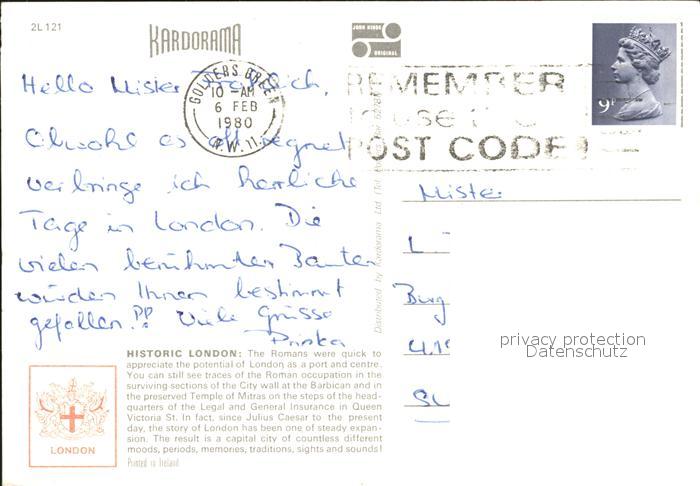 2L121
KARDORAMA
JOHN HINDE
ORIGINAL
GOLDERS GREEN
10 -AM
6 FEB
1980
N.W.11.
REMEMBER
use
POST CODE
9P
Hello Mister
Obwohl es oft regnet
verbringe ich herrliche
Tage in London. Die
vielen berühmten Bauten
würden Ihnen bestimmt
gefallen!!! Viele Grüsse
Distributed by Kardorama Ltd.
Mister
L
Burg
privacy protection
Datenschutz
HISTORIC LONDON: The Romans were quick to
appreciate the potential of London as a port and centre.
You can still see traces of the Roman occupation in the
surviving sections of the City wall at the Barbican and in
the preserved Temple of Mitras on the steps of the head-
quarters of the Legal and General Insurance in Queen
Victoria St. In fact, since Julius Caesar to the present
day, the story of London has been one of steady expan-
sion. The result is a capital city of countless different
moods, periods, memories, traditions, sights and sounds!
Printed in Ireland
LONDON